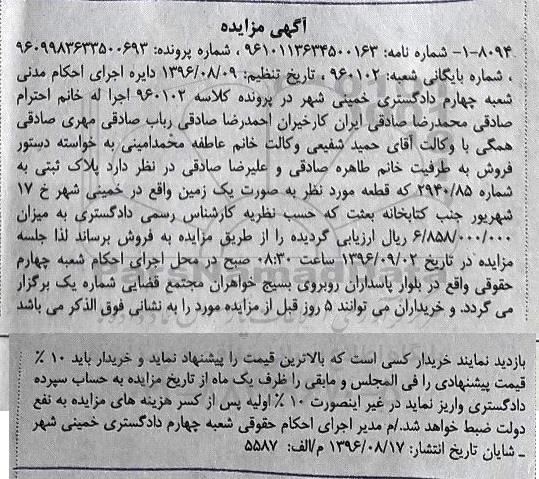 آگهی مزایده
۱-۸۰۹۴- شماره نامه: ۹۶۱۰۱۱۳۶۳۴۵۰۰۱۶۳ ، شماره پرونده: ۹۶۰۹۹۸۳۶۳۳۵۰۰۶۹۳
، شماره بایگانی شعبه: ۹۶۰۱۰۲ ، تاریخ تنظیم: ۱۳۹۶/۰۸/۰۹ دایره اجرای احکام مدنی
شعبه چهارم دادگستری خمینی شهر در پرونده کلاسه ۹۶۰۱۰۲ اجرا له خانم احترام
صادقی محمدرضا صادقی ایران کارخیران احمدرضا صادقی رباب صادقی مهری صادقی
همگی با وکالت آقای حمید شفیعی وکالت خانم عاطفه محمدامینی به خواسته دستور
فروش به طرفیت خانم طاهره صادقی و علیرضا صادقی در نظر دارد پلاک ثبتی به
شماره ۲۹۴۰/۸۵ که قطعه مورد نظر به صورت یک زمین واقع در خمینی شهر خ ۱۷
شهریور جنب کتابخانه بعثت که حسب نظریه کارشناس رسمی دادگستری به میزان
۶/۸۵۸/۰۰۰/۰۰۰ ریال ارزیابی گردیده را از طریق مزایده به فروش برساند لذا جلسه
مزایده در تاریخ ۱۳۹۶/۰۹/۰۲ ساعت ۰۸:۳۰ صبح در محل اجرای احکام شعبه چهارم
حقوقی واقع در بلوار پاسداران روبروی بسیج خواهران مجتمع قضایی شماره یک برگزار
می گردد. و خریداران می توانند ۵ روز قبل از مزایده مورد را به نشانی فوق الذکر می باشد
بازدید نمایند خریدار کسی است که بالاترین قیمت را پیشنهاد نماید و خریدار باید ۱۰ ٪
قیمت پیشنهادی را فی المجلس و مابقی را ظرف یک ماه از تاریخ مزایده به حساب سپرده
دادگستری واریز نماید در غیر اینصورت ۱۰ ٪ اولیه پس از کسر هزینه های مزایده به نفع
دولت ضبط خواهد شد./م مدیر اجرای احکام حقوقی شعبه چهارم دادگستری خمینی شهر
ـ شایان تاریخ انتشار: ۱۳۹۶/۰۸/۱۷ م/الف: ۵۵۸۷
ParsNamadData